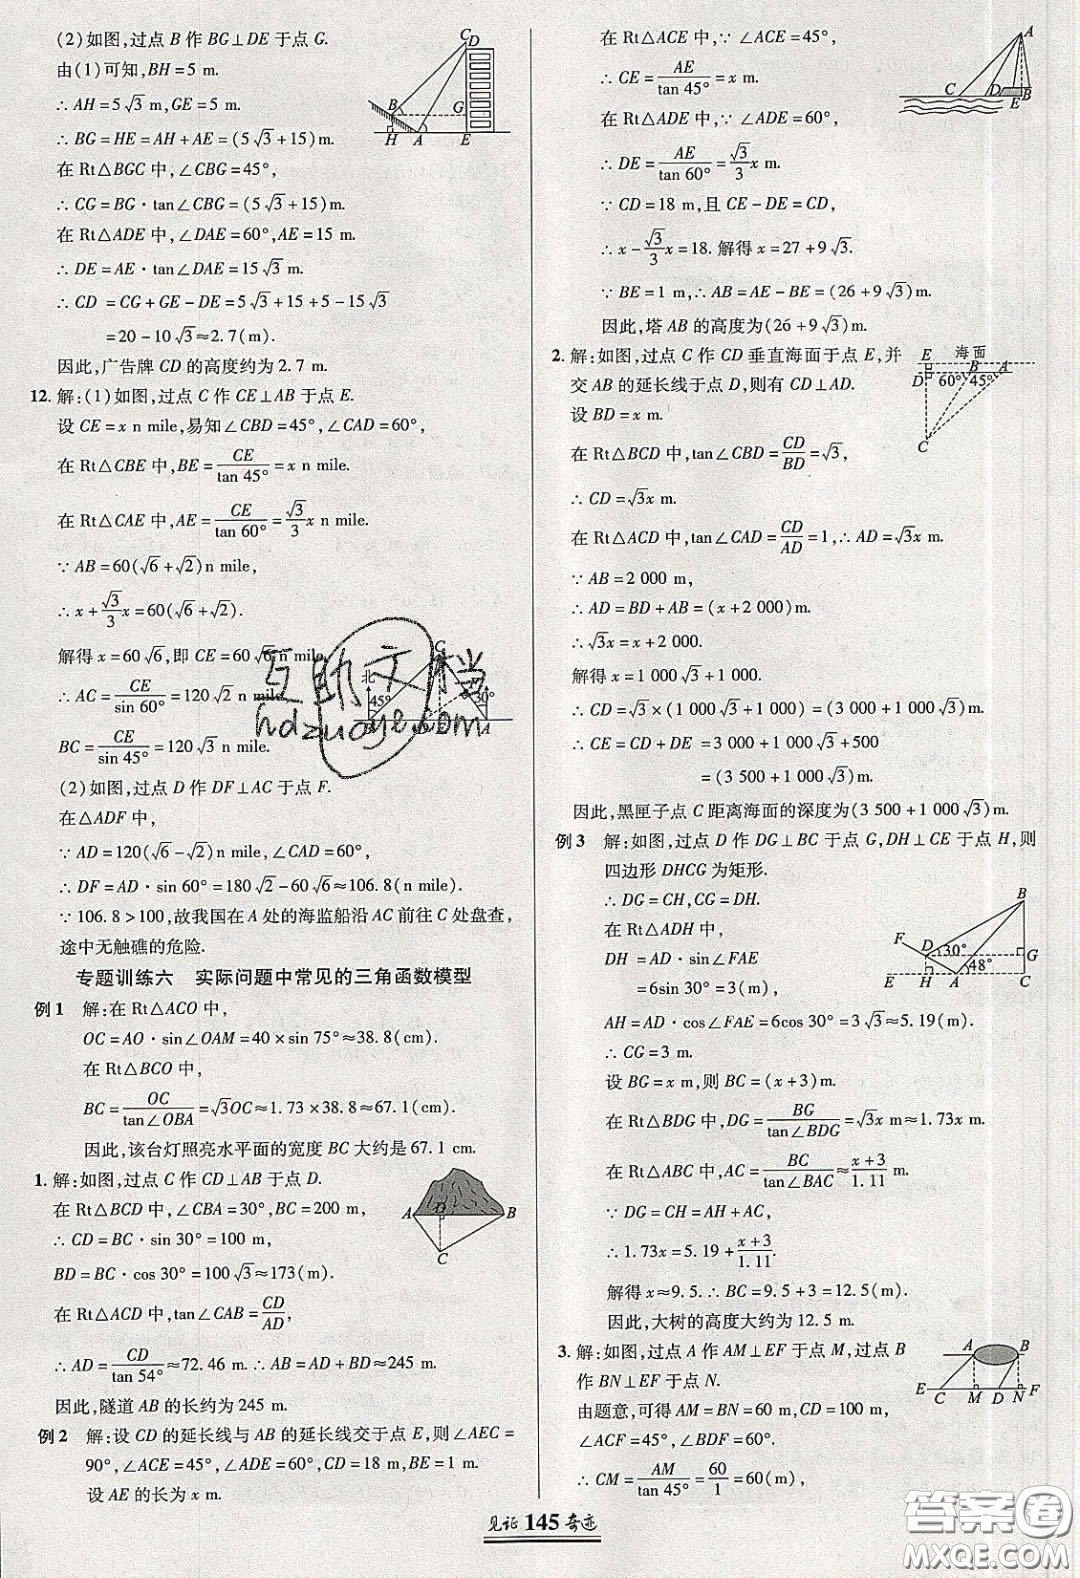 (2)如图,过点 B 作 BG⊥DE 于点 G.
由(1)可知,BH=5 m.
∴ AH=5√3 m,GE=5 m.
∴ BG=HE=AH+AE=(5√3+15)m.
在 Rt△BGC 中,∠CBG=45°,
∴ CG=BG·tan∠CBG=(5√3+15)m.
在 Rt△ADE 中,∠DAE=60°,AE=15 m.
∴ DE=AE·tan∠DAE=15√3 m.
∴ CD =CG+GE-DE=5√3+15+5-15√3
=20-10√3≈2.7(m).
因此,广告牌 CD 的高度约为 2.7 m.
12. 解:(1)如图,过点 C 作 CE⊥AB 于点 E.
设 CE=x n mile,易知∠CBD=45°,∠CAD=60°,
在 Rt△CBE 中,BE=CE/tan 45°=x n mile.
在 Rt△CAE 中,AE=CE/tan 60°=√3/3 x n mile.
∵ AB=60(√6+√2)n mile,
∴ x+√3/3 x=60(√6+√2).
解得 x=60√6,即 CE=60√6 n mile.
∴ AC=CE/sin 60°=120√2 n mile,
BC=CE/sin 45°=120√3 n mile.
(2)如图,过点 D 作 DF⊥AC 于点 F.
在△ADF 中,
∵ AD=120(√6-√2)n mile,∠CAD=60°,
∴ DF=AD·sin 60°=180√2-60√6≈106.8(n mile).
∵ 106.8>100,故我国在 A 处的海监船沿 AC 前往 C 处盘查,
途中无触礁的危险.
专题训练六 实际问题中常见的三角函数模型
例 1 解:在 Rt△ACO 中,
OC=AO·sin∠OAM=40×sin 75°≈38.8(cm).
在 Rt△BCO 中,
BC=OC/tan∠OBA=√3OC≈1.73×38.8≈67.1(cm).
因此,该台灯照亮水平面的宽度 BC 大约是 67.1 cm.
1. 解:如图,过点 C 作 CD⊥AB 于点 D.
在 Rt△BCD 中,∠CBA=30°,BC=200 m,
∴ CD=BC·sin 30°=100 m,
BD=BC·cos 30°=100√3≈173(m).
在 Rt△ACD 中,tan∠CAB=CD/AD,
∴ AD=CD/tan 54°≈72.46 m. ∴ AB=AD+BD≈245 m.
因此,隧道 AB 的长约为 245 m.
例 2 解:设 CD 的延长线与 AB 的延长线交于点 E,则∠AEC=
90°,∠ACE=45°,∠ADE=60°,CD=18 m,BE=1 m.
设 AE 的长为 x m.
在 Rt△ACE 中,∵ ∠ACE=45°,
∴ CE=AE/tan 45°=x m.
在 Rt△ADE 中,∵ ∠ADE=60°,
∴ DE=AE/tan 60°=√3/3 x m.
∵ CD=18 m,且 CE-DE=CD,
∴ x-√3/3 x=18. 解得 x=27+9√3.
∵ BE=1 m,∴ AB=AE-BE=(26+9√3)m.
因此,塔 AB 的高度为(26+9√3)m.
2. 解:如图,过点 C 作 CD 垂直海面于点 E,并
交 AB 的延长线于点 D,则有 CD⊥AD.
设 BD=x m.
在 Rt△BCD 中,tan∠CBD=CD/BD=√3,
∴ CD=√3x m.
在 Rt△ACD 中,tan∠CAD=CD/AD=1,∴ AD=√3x m.
∵ AB=2 000 m,
∴ AD=BD+AB=(x+2 000)m.
∴ √3x=x+2 000.
解得 x=1 000√3+1 000.
∴ CD=√3×(1 000√3+1 000)=(3 000+1 000√3)m.
∴ CE=CD+DE =3 000+1 000√3+500
=(3 500+1 000√3)m.
因此,黑匣子点 C 距离海面的深度为(3 500+1 000√3)m.
例 3 解:如图,过点 D 作 DG⊥BC 于点 G,DH⊥CE 于点 H,则
四边形 DHCG 为矩形.
∴ DG=CH,CG=DH.
在 Rt△ADH 中,
DH =AD·sin∠FAE
=6sin 30°=3(m),
AH=AD·cos∠FAE=6cos 30°=3√3≈5.19(m).
∴ CG=3 m.
设 BG=x m,则 BC=(x+3)m.
在 Rt△BDG 中,DG=BG/tan∠BDG=√3x m≈1.73x m.
在 Rt△ABC 中,AC=BC/tan∠BAC≈(x+3)/1.11 m.
∵ DG=CH=AH+AC,
∴ 1.73x=5.19+(x+3)/1.11.
解得 x≈9.5. ∴ BC=9.5+3=12.5(m).
因此,大树的高度大约为 12.5 m.
3. 解:如图,过点 A 作 AM⊥EF 于点 M,过点 B
作 BN⊥EF 于点 N.
由题意,可得 AM=BN=60 m,CD=100 m,
∠ACF=45°,∠BDF=60°.
∴ CM=AM/tan 45°=60/1=60(m),
见证 145 奇迹
互助文档
hdzuoye.com
答案圈
MXQE.COM